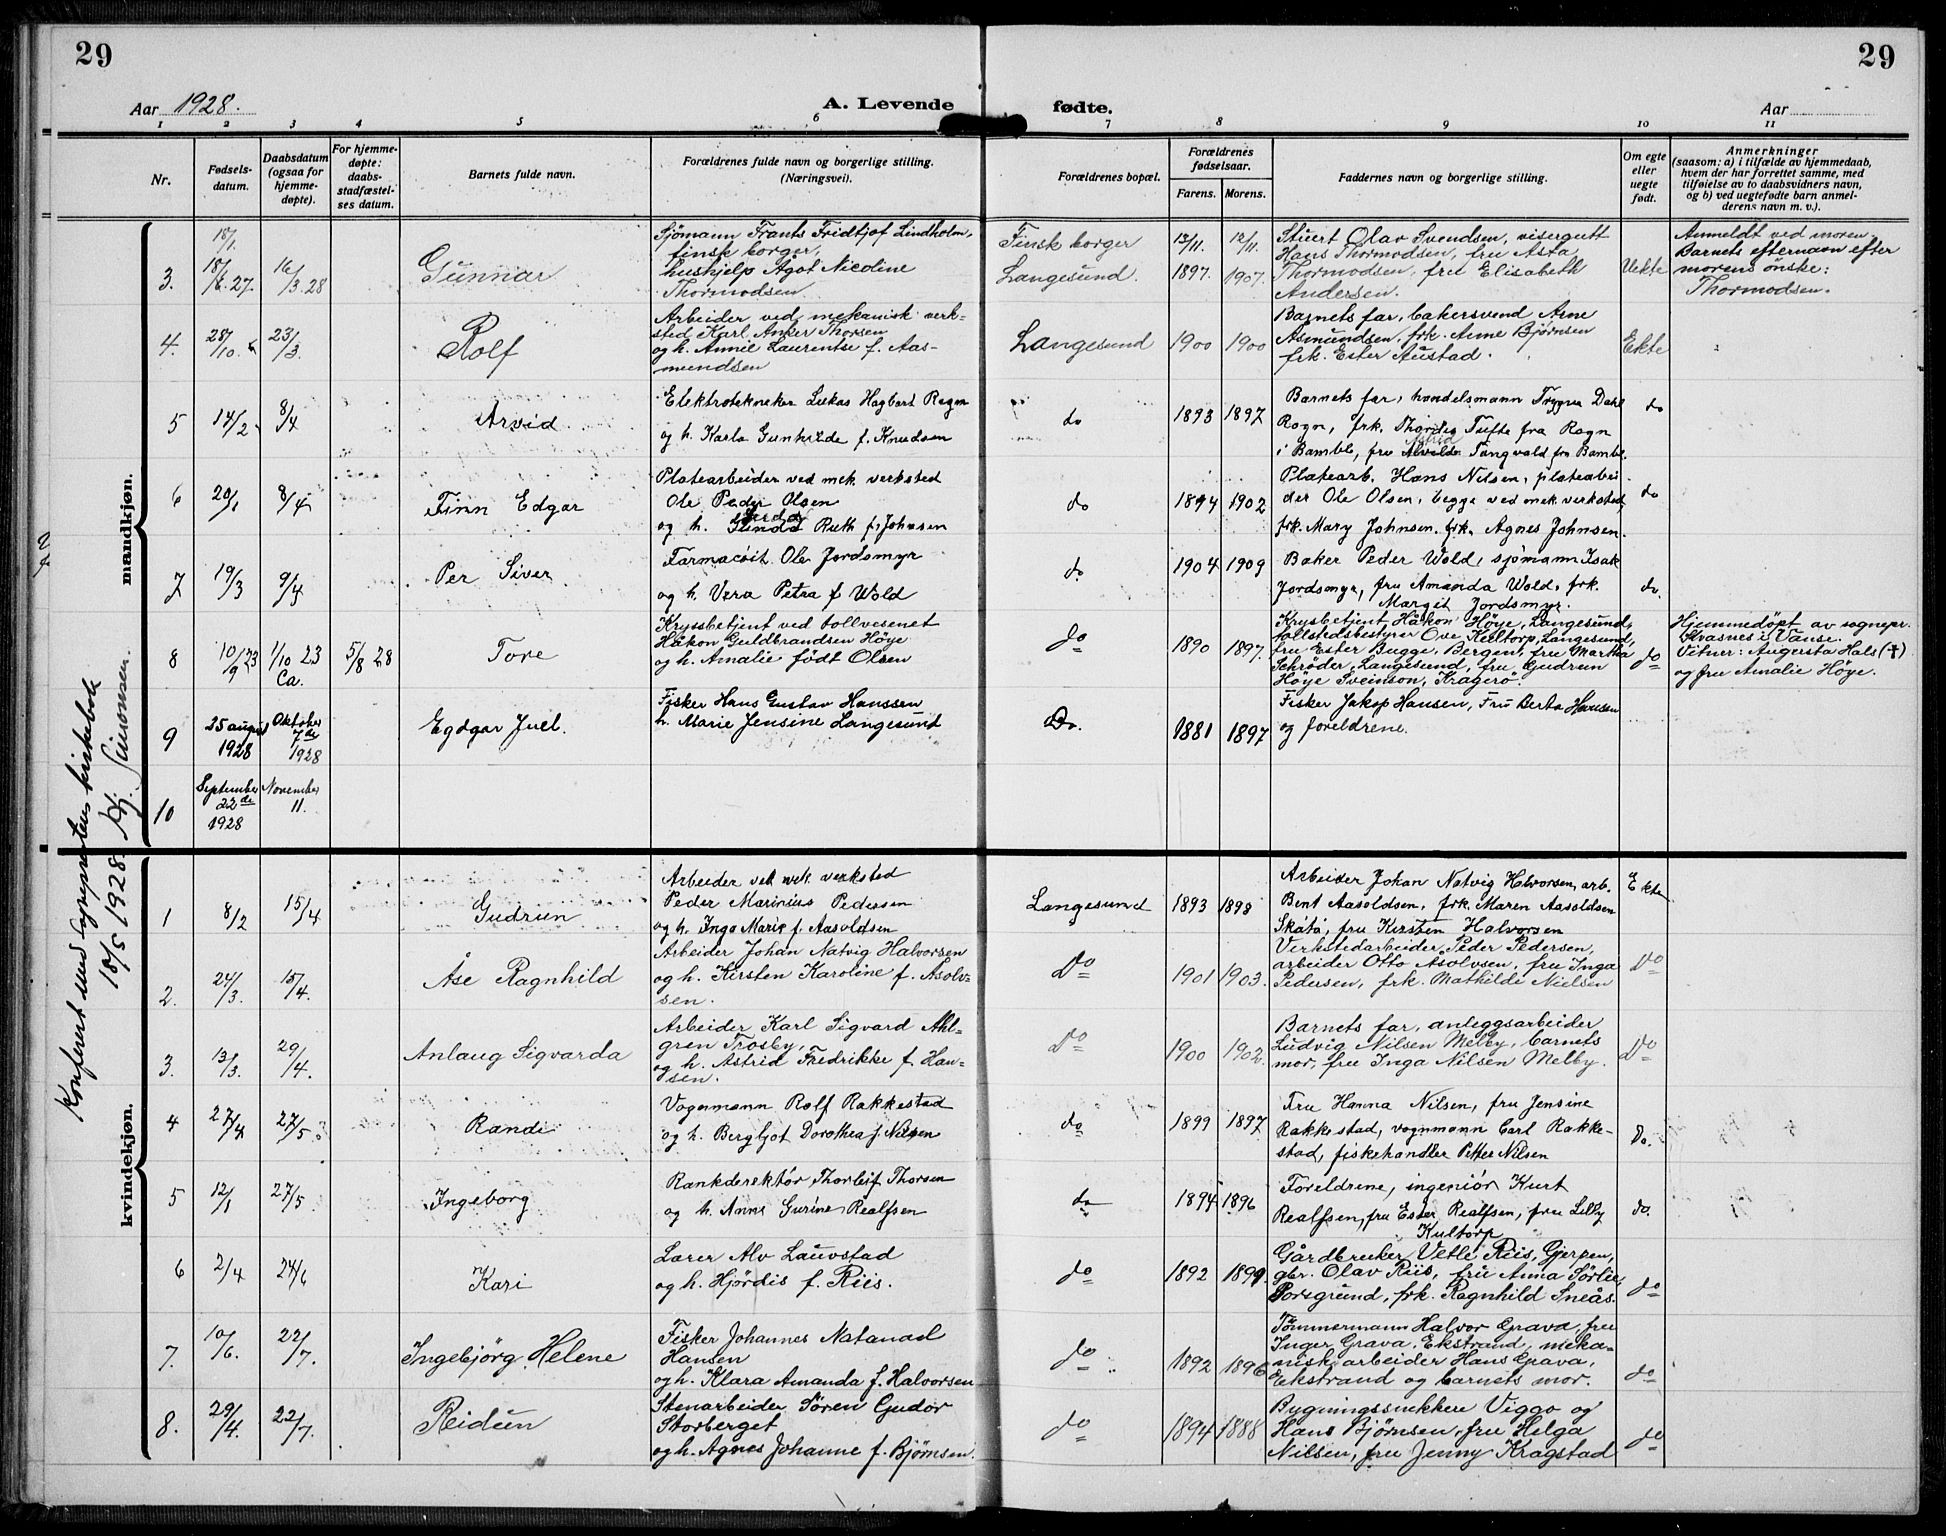 29
29
Aar 1928.
A. Levende fødte.
Aar
1 2 3 4 5 6 7 8 9 10 11
Nr.
Fødsels-
datum.
Daabsdatum
(ogsaa for
hjemme-
døpte).
For hjemme-
døpte:
daabs-
stadfæstel-
ses datum.
Barnets fulde navn.
Forældrenes fulde navn og borgerlige stilling.
(Næringsvei).
Forældrenes bopæl.
Forældrenes
fødselsaar.
Farens. Morens.
Faddernes navn og borgerlige stilling.
Om egte
eller
uegte
født.
Anmerkninger
(saasom: a) i tilfælde av hjemmedaab,
hvem der har forrettet samme, med
tilføielse av to daabsvidners navn,
og b) ved uegtefødte barn anmel-
derens navn m. v.).
mandkjøn.
3.
18/1.
18/6.27.
16/3.28
Gunnar
Sjømann Frants Fridtjof Lindholm,
finsk borger,
hushjelp Agot Nicoline
Thormodsen.
Finsk borger
Langesund.
13/11.
1897.
12/11.
1907.
Stuert Olav Svendsen, visergutt
Hans Thormodsen, fru Asta
Thormodsen, fru Elisabeth
Andersen.
Uekte
Anmeldt ved moren.
Barnets efternavn efter
morens ønske:
Thormodsen.
4.
28/10.
23/3.
Rolf
Arbeider ved mekanisk verk-
sted Karl Anker Thorsen
og h. Annie Laurentse f. Aas-
mundsen
Langesund
1900
1900
Barnets far, bakersvend Arne
Asmundsen, frk. Anne Bjørnsen
frk. Ester Austad.
Ekte
5
14/2
8/4
Arvid
Elektrotekniker Lukas Hagbart Rogn
og h. Karla Gunhilde f. Knudsen
do
1893
1897
Barnets far, handelsmann Trygve Dahl
Rogn, frk. Thordis Tufte fra Rogn
i Bamble, fru Tangvald fra Bamble.
do
6
20/1
8/4
Finn Edgar
Platearbeider ved mek verksted
Ole Peder Olsen
og h. Gerda Ruth f. Johnsen
do
1894
1902
Platearb. Hans Nilsen, platearbei
der Ole Olsen, begge ved mek verksted,
frk. Mary Johnsen. frk. Agnes Johnsen.
do
7
19/3
9/4
Per Siver
Farmacøit Ole Jordsmyr
og h. Vera Petra f Wold
do
1904
1909
Baker Peder Wold, sjømann Isak
Jordsmyr, fru Amanda Wold, frk.
Margit Jordsmyr.
do.
8
10/9 23
1/10 23
Ca.
5/8 28
Tore
Kryssbetjent ved tollvesenet
Håkon Guldbrandsen Høye
og h. Amalie født Olsen
do
1890
1897.
Krysbetjent Håkon Höye, Langesund,
tollstedsbestyrer Ove Keltorp, Langesund,
fru Ester Bugge, Bergen, fru Martha
Schrøder, Langesund, fru Gudrun
Høye Sveinson, Kragerø.
do
Hjemmedöpt av sognepr.
Kvasnes i Vanse.
Vitner: Augusta Hals (†)
og fru Amalie Höye.
9
25 august
1928
Oktober
7de
1928
Egdgar Juel.
Fisker Hans Gustav Hanssen
h. Marie Jensine Langesund
Do.
1881
1897
Fisker Jakop Hansen, Fru Berta Hansen
og foreldrene.
10
September
22de
1928
November
11.
Konferert med sogneprestens kirkebok
18/5 1928 Simonsen.
kvindekjøn.
1
8/2
15/4
Gudrun
Arbeider ved mek. verksted
Peder Marinius Pedersen
og h. Inga Marie f. Aasoldsen
Langesund
1893
1898
Arbeider Johan Natvig Halvorsen, arb.
Bent Aasoldsen, frk. Maren Aasoldsen
Skåtå, fru Kirsten Halvorsen
Ekte
2.
24/3.
15/4.
Åse Ragnhild
Arbeider Johan Natvig Halvorsen
og h. Kirsten Karoline f. Asolv-
sen.
Do
1901
1903.
Verkstedarbeider Peder Pedersen,
arbeider Otto Asolvsen, fru Inga
Pedersen, frk. Mathilde Nielsen
Do
3.
13/3.
29/4.
Anlaug Sigvarda
Arbeider Karl Sigvard Ahl-
gren Trosby,
og h. Astrid Fredrikke f. Han-
sen.
Do
1900
1902.
Barnets far, anleggsarbeider
Ludvig Nilsen Melby, barnets
mor, fru Inga Nilsen Melby.
Do
4
27/4
27/5
Randi
Vognmann Rolf Rakkestad
og h. Bergljot Dorothea f. Nilsen
do
1899
1897
Fru Hanna Nilsen, fru Jensine
Rakkestad, vognmann Carl Rakke-
stad, fiskehandler Petter Nilsen
do.
5
12/1
27/5.
Ingeborg
Bankdirektør Thorleif Thorsen
og h. Anna Gurine Realfsen
do
1894
1896
Foreldrene, ingeniør Kurt
Realfsen, fru Ester Realfsen, fru Lilly
Kultorp
do.
6
2/4
24/6
Kari
Lærer Alv Lauvstad
og h. Hjördis f. Riis.
do
1892
1899.
Gårdbruker Vetle Riis, Gjerpen,
gbr. Olav Riis, fru Anna Sörlie,
Porsgrund, frk. Ragnhild Sneås.
do
7.
10/6.
22/7.
Ingebjörg Helene
Fisker Johannes Natanael
Hansen
og h. Klara Amanda f. Halvorsen
do
1892
1896
Tömmermann Halvor Grava, fru
Inger Grava, Ekstrand, meka-
nisk arbeider Hans Grava,
Ekstrand og barnets mor.
do
8.
29/4.
22/7.
Reidun
Stenarbeider Sören Gudor
Storberget
og h. Agnes Johanne f. Bjørnsen.
do
1894
1888
Bygningssnekkere Viggo og
Hans Bjørnsen, fru Helga
Nilsen, fru Jenny Kragstad
do